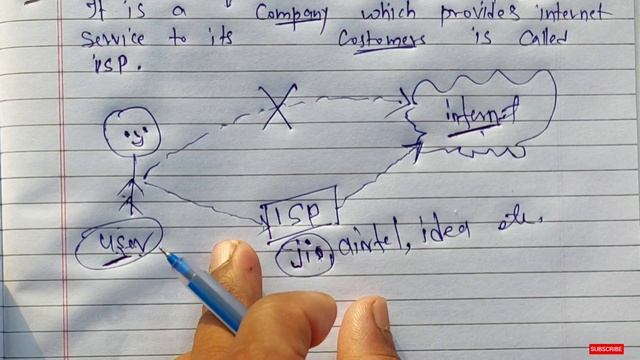 It is a Company which provides internet
Service to its Costomers is Called
ISP.
internet
ISP
user
jio, airtel, idea etc.
SUBSCRIBE